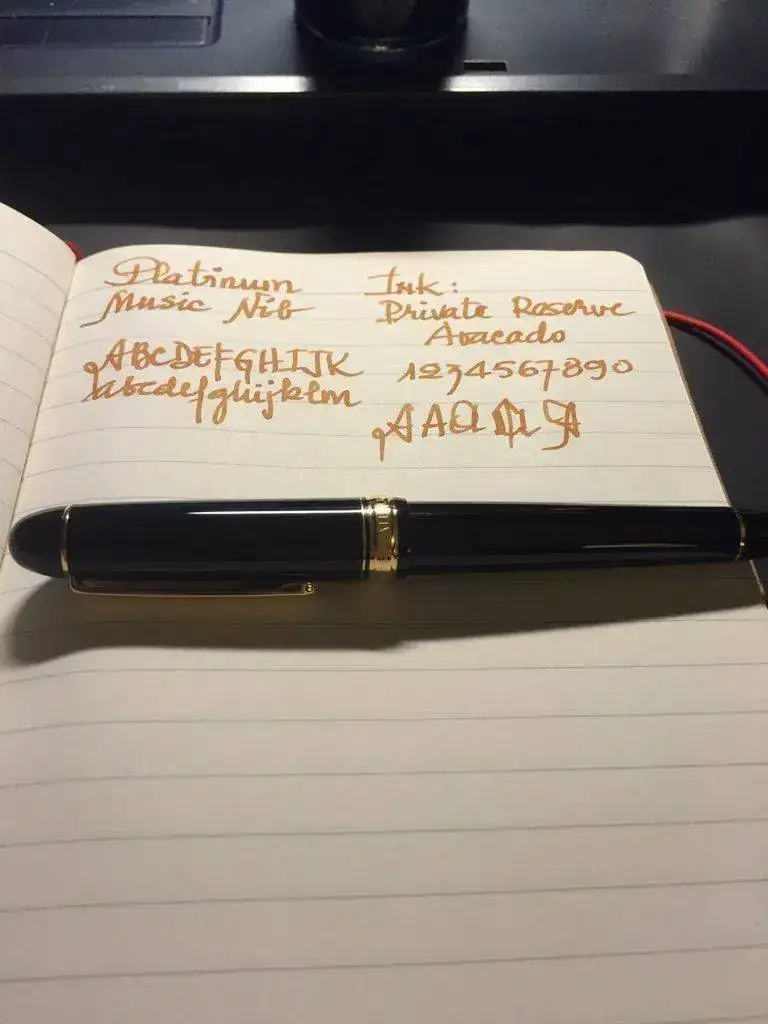 Platinum
Music Nib
ABCDEFGHIJK
abcdefghijklm
Ink:
Private Reserve
Avacado
1234567890
A A A A A